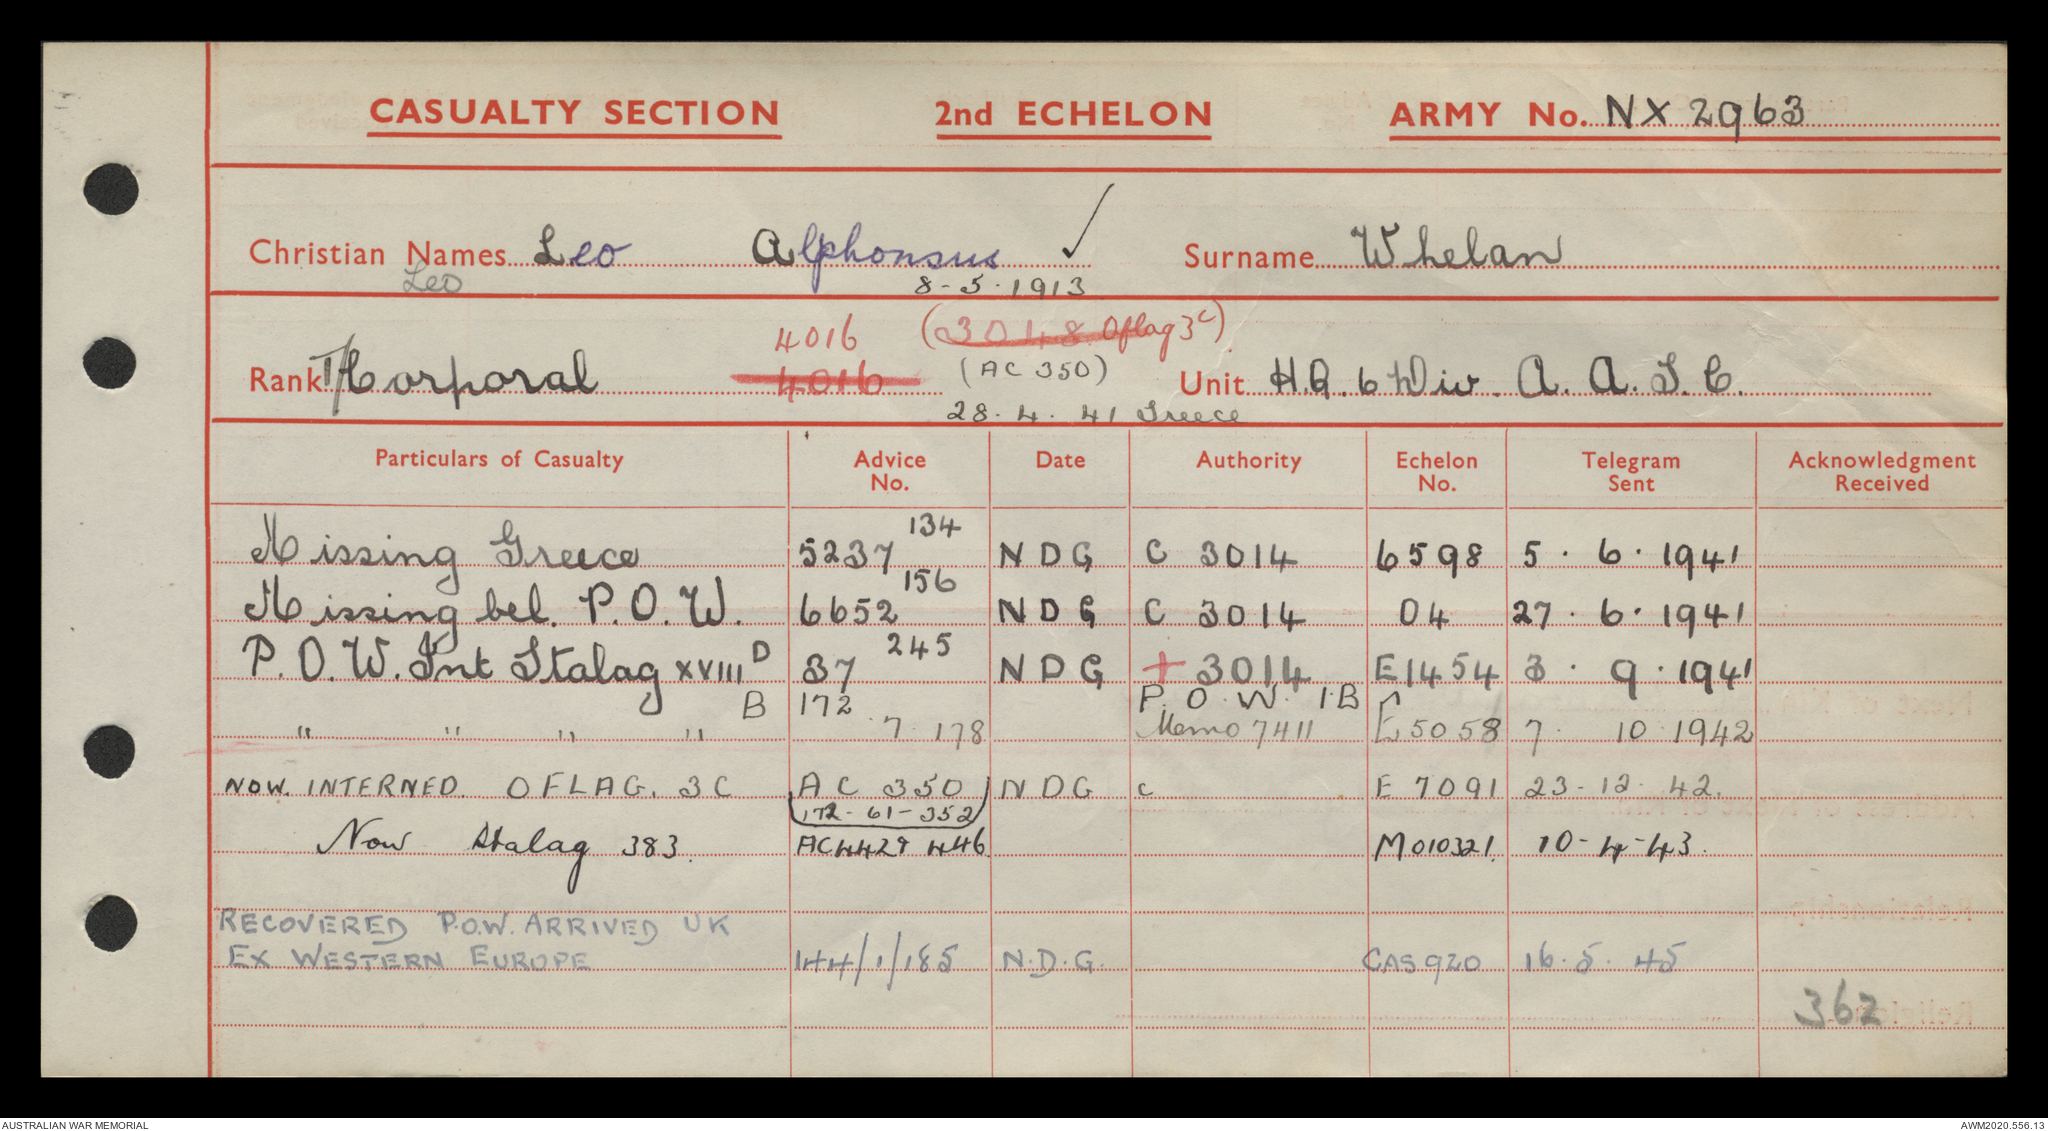 CASUALTY SECTION 2nd ECHELON ARMY No. NX 2963
Christian Names Leo Alphonsus ✓ Surname Whelan
Leo 8-5-1913
4016 (3048 Oflag 3C)
Rank Corporal 4016 (AC 350) Unit H.Q. 6 Div. A.A.S.C.
28.4.41 Greece
Particulars of Casualty Advice No. Date Authority Echelon No. Telegram Sent Acknowledgment Received
Missing Greece 5237 134 NDG C 3014 6598 5.6.1941
Missing bel. P.O.W. 6652 156 NDG C 3014 04 27.6.1941
P.O.W. Int Stalag XVIII D 37 245 NDG + 3014 E1454 3.9.1941
B 172 P.O.W. 1B
" " " " 7 178 Memo 7411 E5058 7.10.1942
NOW INTERNED. OFLAG. 3C AC 350 NDG C E 7091 23-12-42.
172-61-352
Now Stalag 383. AC4429 446 M010321. 10-4-43.
RECOVERED P.O.W. ARRIVED UK
EX WESTERN EUROPE 144/1/185 N.D.G. CAS920 16.5.45
362
AUSTRALIAN WAR MEMORIAL AWM2020.556.13